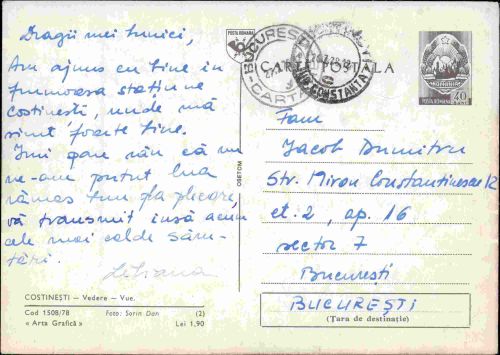 Dragii mei bunici,
Am ajuns cu bine în
frumoasa stațiune
Costinești, unde mă
simt foarte bine.
Îmi pare rău că nu
ne-am putut lua
rămas bun la plecare,
vă transmit însă acum
cele mai calde săru-
tări.
Liliana
COSTINEȘTI — Vedere — Vue.
Cod 1508/78 Foto: Sorin Dan (2)
« Arta Grafică » Lei 1,90
OSETCM
POSTA ROMANA
CARTE POSTALA
BUCUREȘTI
CARTA
CONSTANTA
POSTA ROMANA
40
Fam
Iacob Dumitru
Str. Miron Constantinescu 12
et. 2, ap. 16
sector 7
București
BUCUREȘTI
(Țara de destinație)